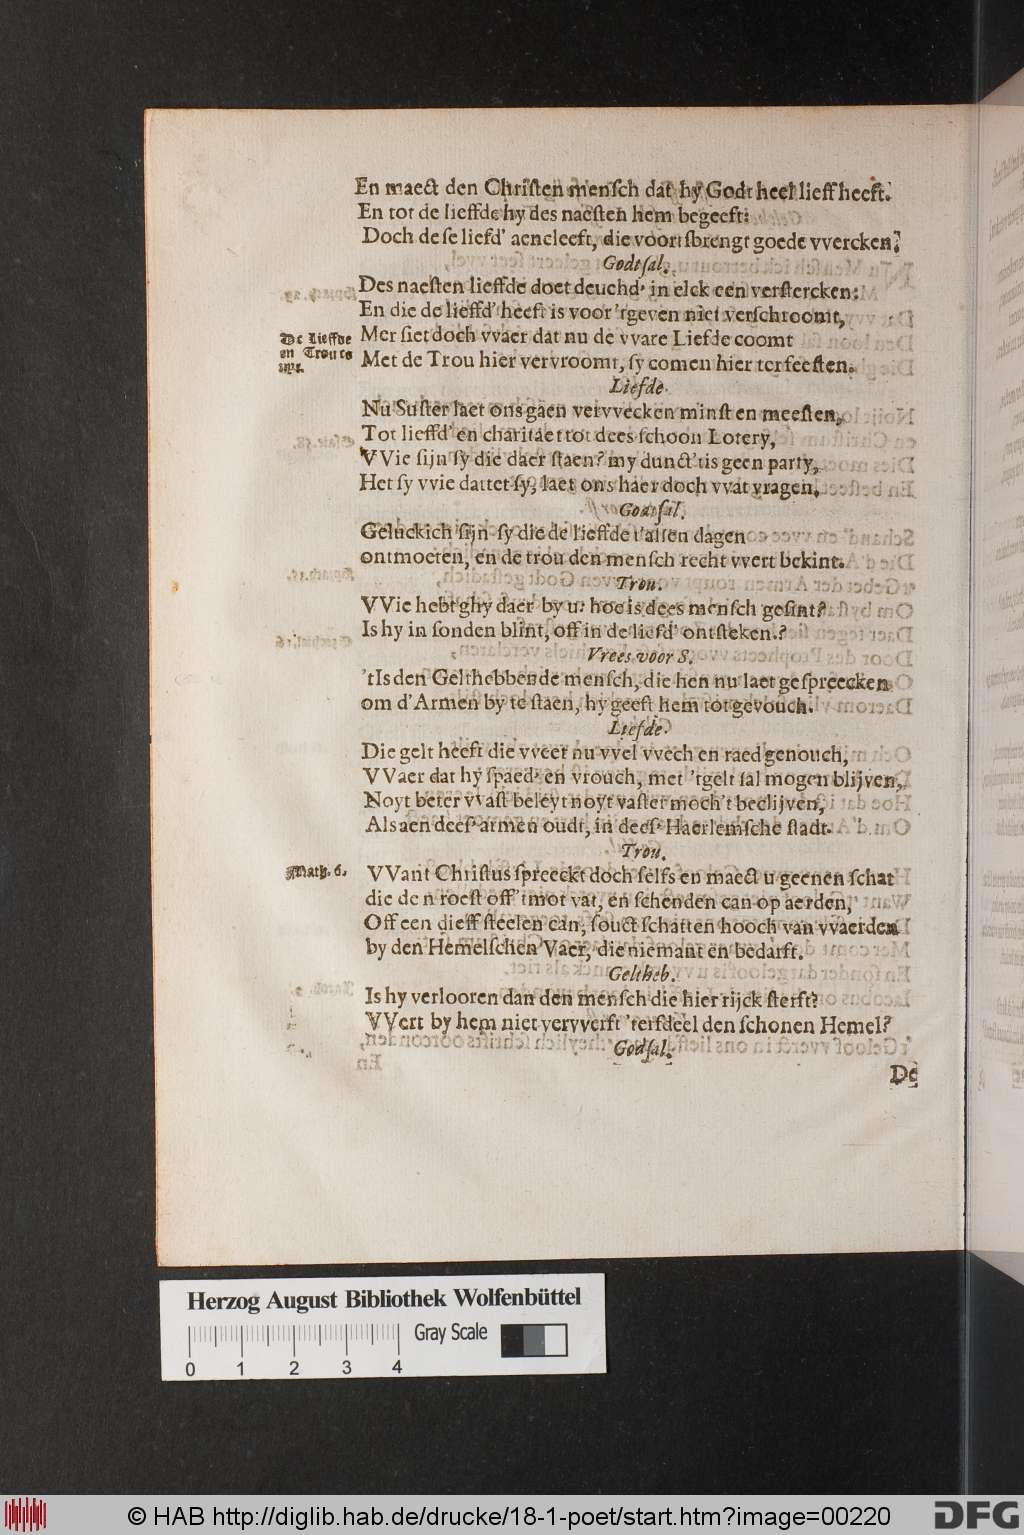 En maect den Chriſten menſch dat hy Godt heel lieff heeft.
En tot de lieffde hy des naeſten hem begeeft:
Doch deſe liefd' aencleeft, die voortſbrengt goede vvercken?
Godtſal.
Des naeſten lieffde doet deuchd' in elck een verſtercken:
En die de lieffd' heeft is voor 'tgeven niet verſchroomt,
Mer ſiet doch vvaer dat nu de vvare Liefde coomt
De Lieffde
en Trou co
Met de Trou hier vervroomt, ſy comen hier terfeeſten.
Liefde.
Nu Suſter laet ons gaen vervvecken minſt en meeſten,
Tot lieffd' en charitaet tot dees ſchoon Lotery,
VVie ſijn ſy die daer ſtaen? my dunct'tis geen party,
Het ſy vvie dattet ſy, laet ons haer doch vvat vragen.
Godtſal.
Geluckich ſijn ſy die de lieffde t'allen dagen
ontmoeten, en de trou den menſch recht vvert bekint.
Trou.
VVie hebt ghy daer by u: hoe is dees menſch geſint?
Is hy in ſonden blint, off in de liefd' ontſteken.?
Vrees voor S.
'tIs den Gelthebbende menſch, die hen nu laet geſpreecken
om d'Armen by te ſtaen, hy geeft hem tot gevouch.
Liefde.
Die gelt heeft die vveet nu vvel vvech en raed genouch,
VVaer dat hy ſpaed' en vrouch, met 'tgelt ſal mogen blijven,
Noyt beter vvaſt beleyt noyt vaſter moch't beclijven,
Als aen deeſ' armen oudt, in deeſ' Haerlemſche ſtadt.
Trou.
Math. 6.
VVant Chriſtus ſpreeckt doch ſelfs en maect u geenen ſchat
die den roeſt off 'tmot vat, en ſchenden can op aerden,
Off een dieff ſteelen can, ſouct ſchatten hooch van vvaerden
by den Hemelſchen Vaer, die niemant en bedarft.
Geltheb.
Is hy verlooren dan den menſch die hier rijck ſterft?
VVert by hem niet vervverft 'terfdeel den ſchonen Hemel?
Godſal.
De
Herzog August Bibliothek Wolfenbüttel
Gray Scale
0 1 2 3 4
© HAB http://diglib.hab.de/drucke/18-1-poet/start.htm?image=00220
DFG